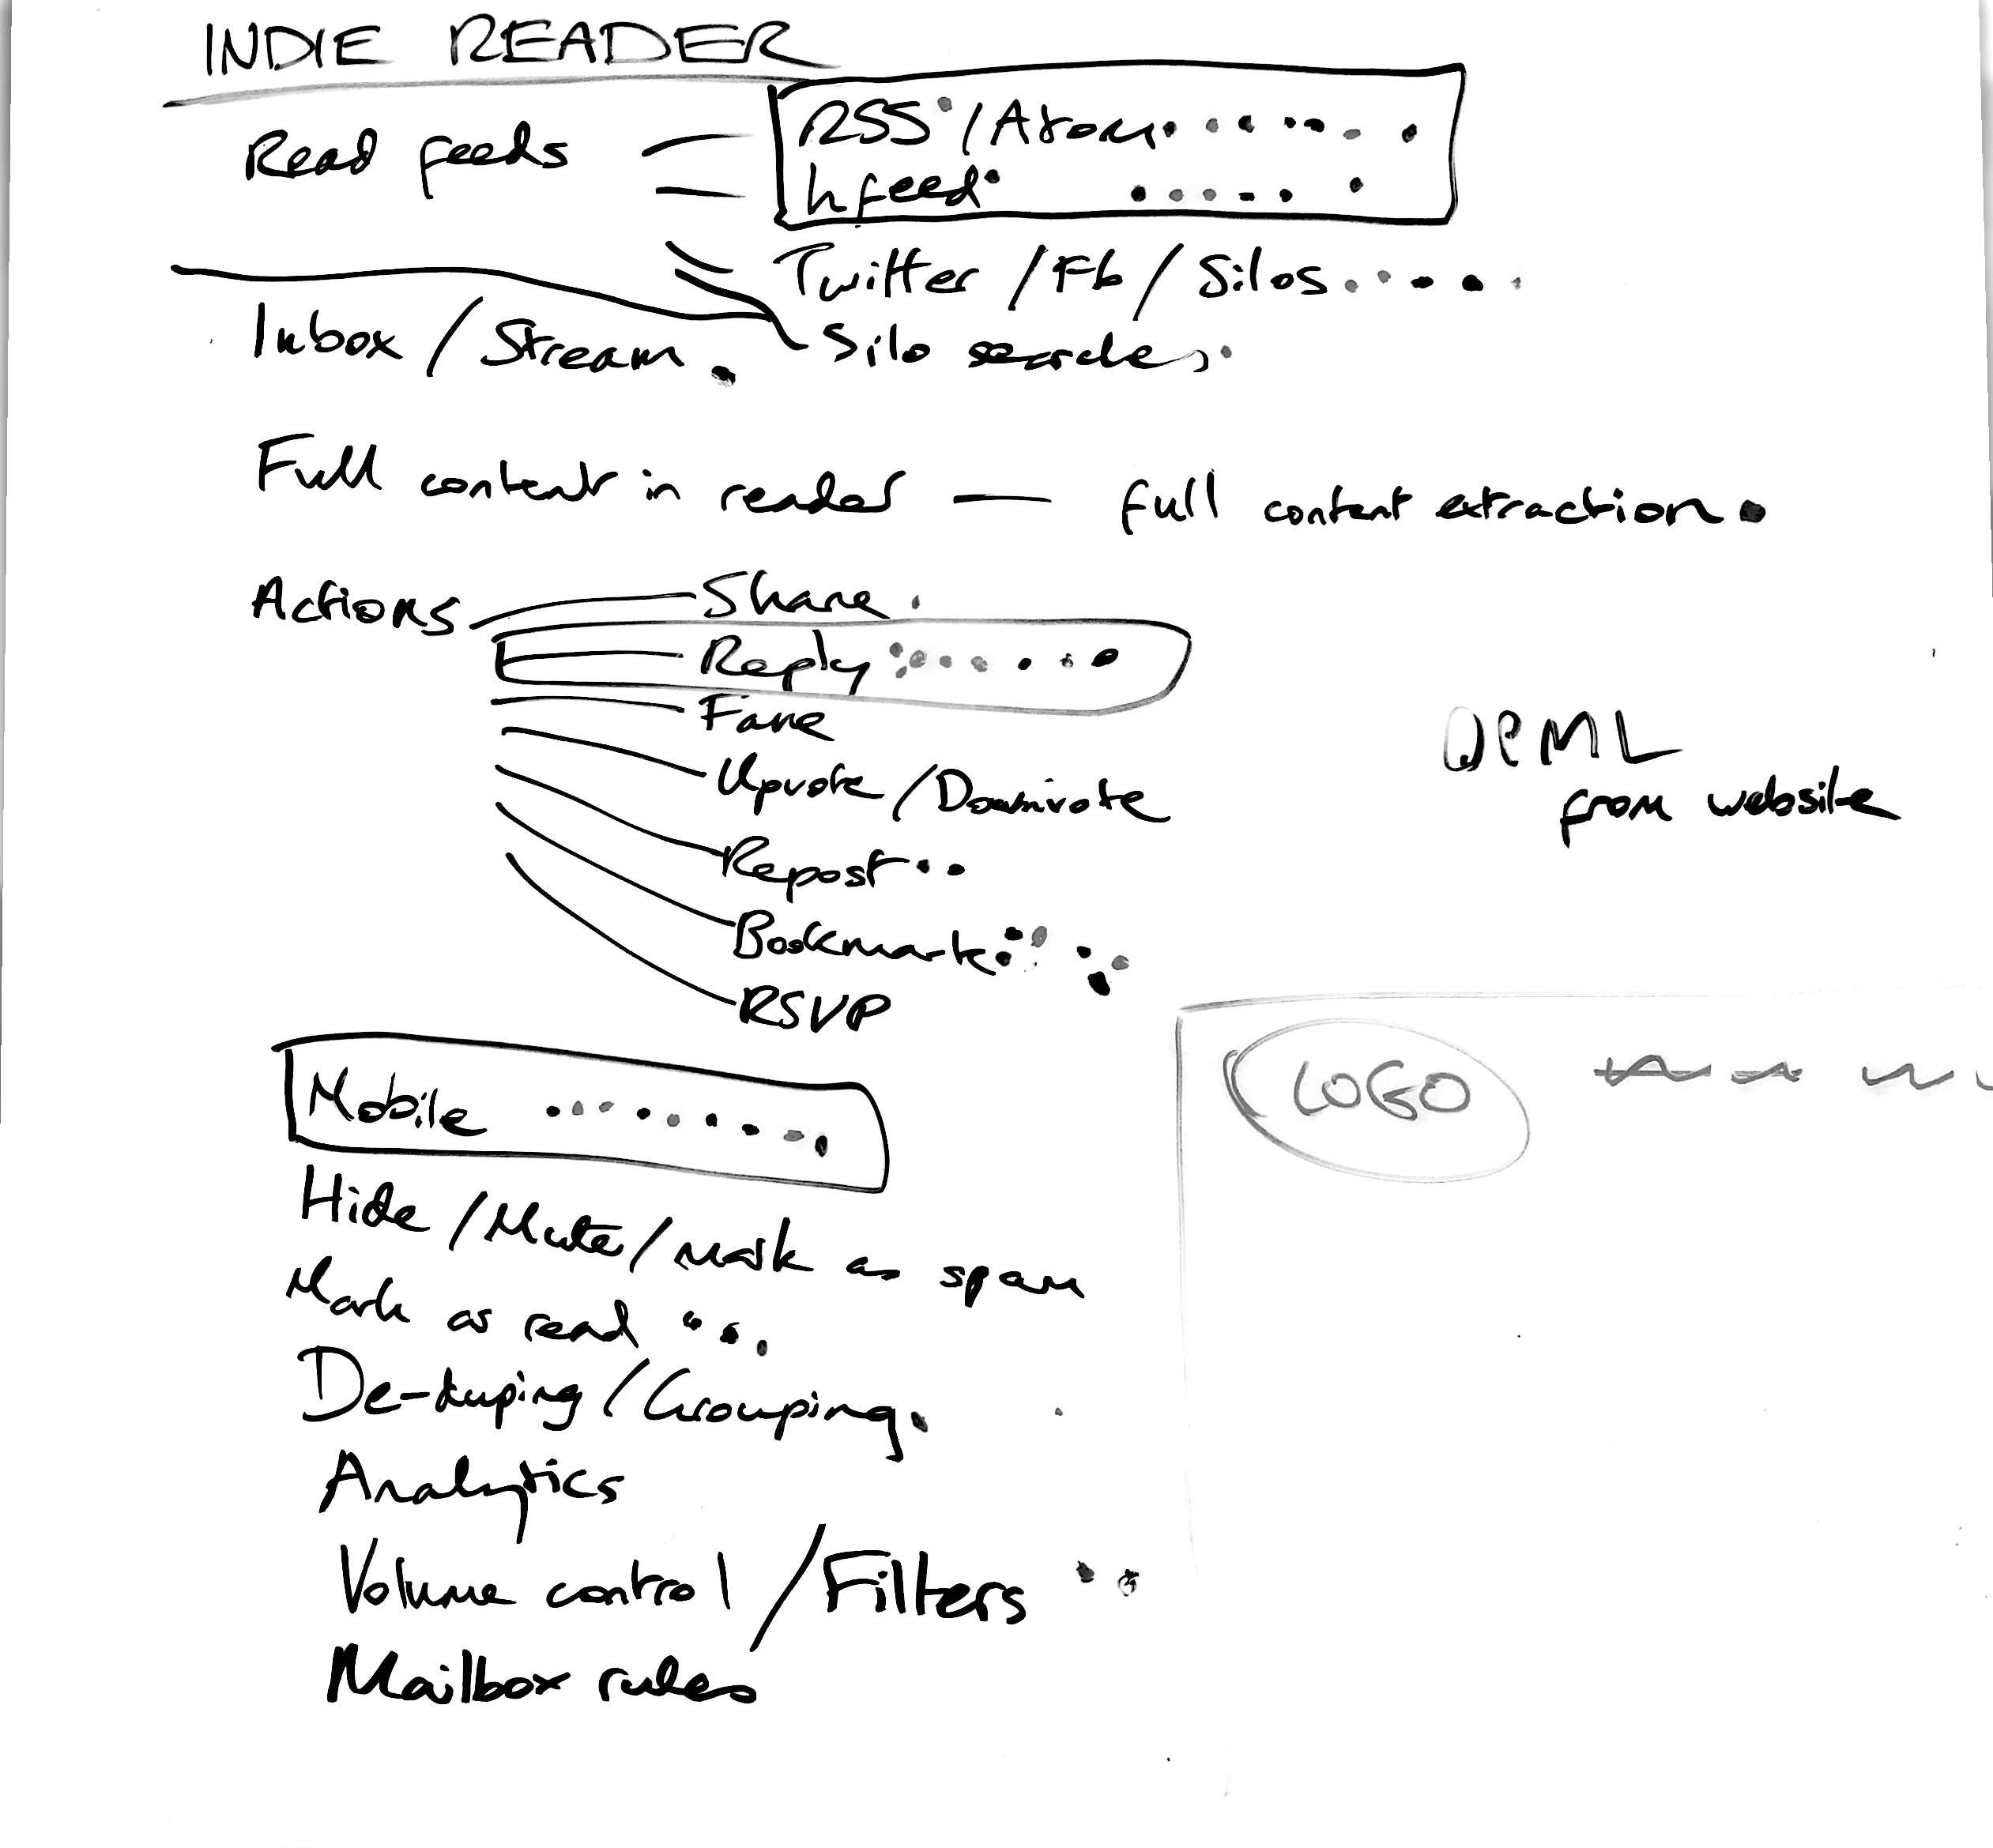 INDIE READER
Read feeds
RSS / Atom
hfeed
Twitter / Fb / Silos
Silo searches
Inbox / Stream
Full content in reader — full content extraction
Actions
Share
Reply
Fave
Upvote / Downvote
Repost
Bookmark
RSVP
OPML
from website
LOGO
Mobile
Hide / Mute / mark as spam
Mark as read
De-duping / Grouping
Analytics
Volume control / Filters
Mailbox rules